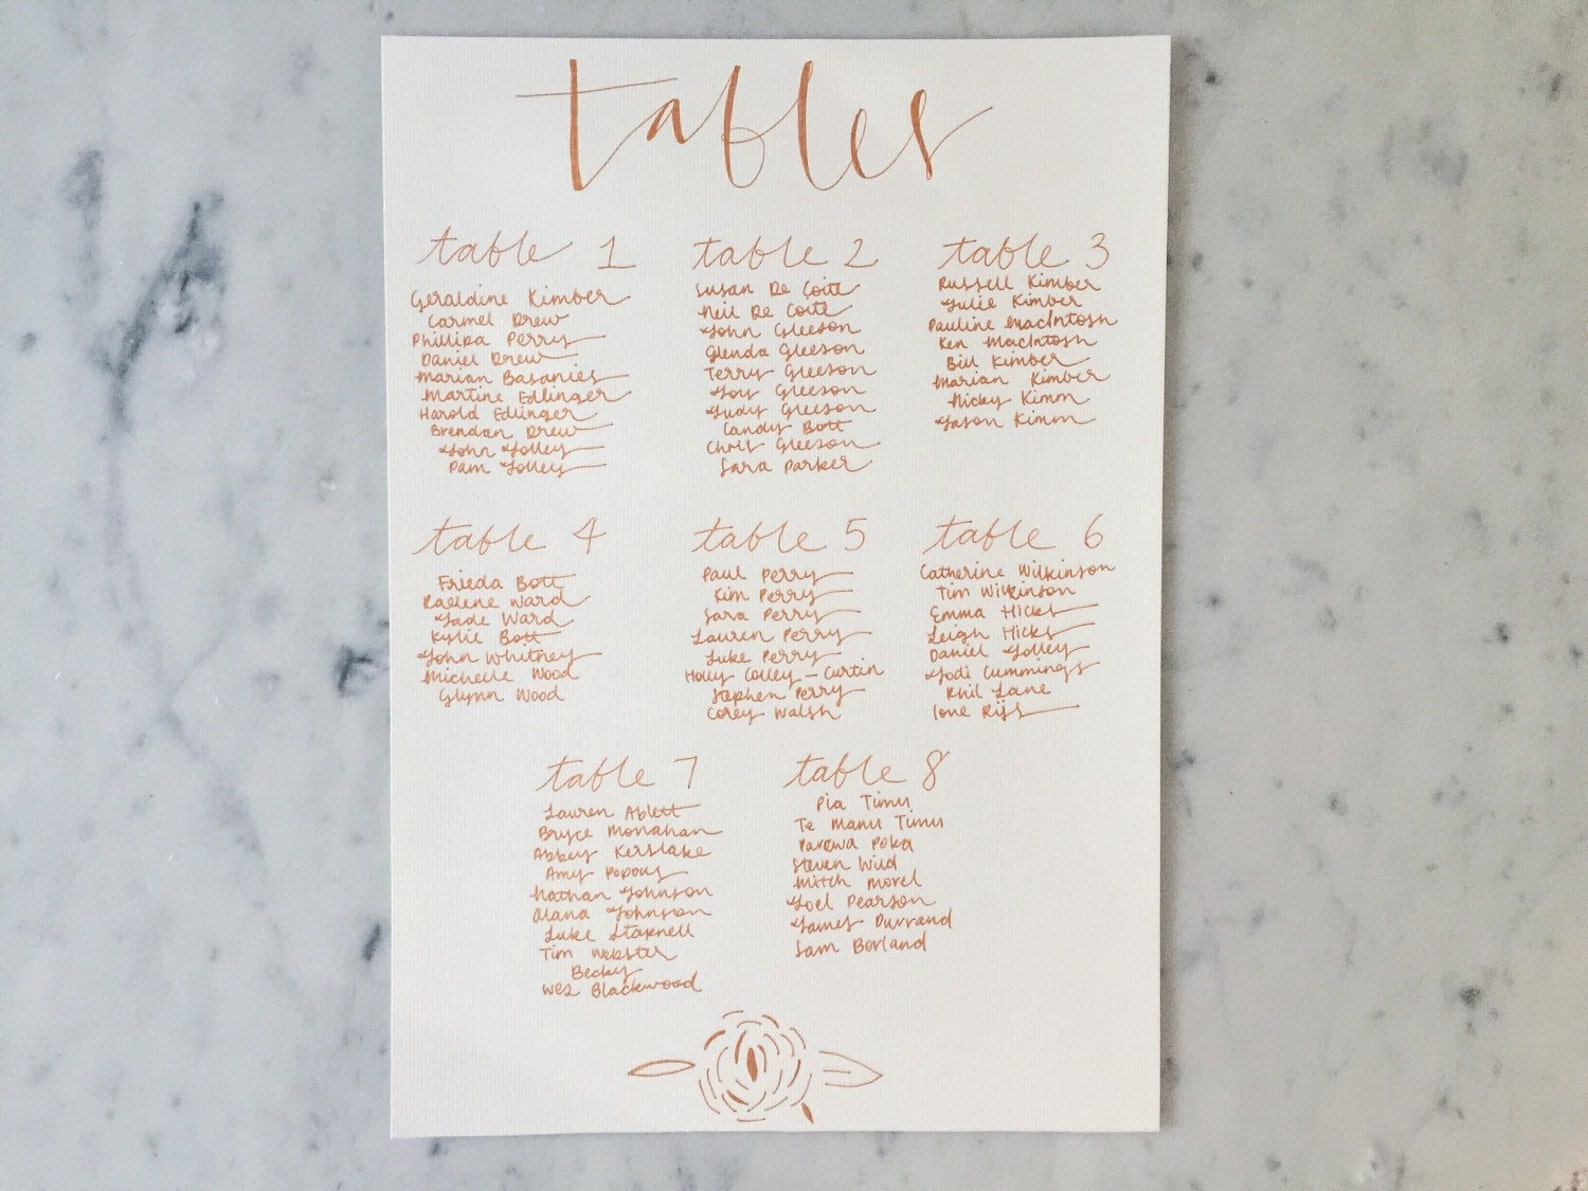 tables
table 1
Geraldine Kimber
Carmel Drew
Phillipa Perry
Daniel Drew
Marian Basanies
Martine Edlinger
Harold Edlinger
Brendan Drew
John Jolley
Pam Jolley
table 2
Susan De Coite
Neil De Coite
John Gleeson
Glenda Gleeson
Terry Gleeson
Joy Gleeson
Judy Gleeson
Candy Bott
Chris Gleeson
Sara Parker
table 3
Russell Kimber
Julie Kimber
Pauline MacIntosh
Ken MacIntosh
Bill Kimber
Marian Kimber
Nicky Kimm
Jason Kimm
table 4
Frieda Bott
Raelene Ward
Jade Ward
Kylie Bott
John Whitney
Michelle Wood
Glynn Wood
table 5
Paul Perry
Kim Perry
Sara Perry
Lauren Perry
Luke Perry
Holly Colley - Curtin
Stephen Perry
Corey Walsh
table 6
Catherine Wilkinson
Tim Wilkinson
Emma Hicks
Leigh Hicks
Daniel Jolley
Jodi Cummings
Phil Lane
Ione Rijs
table 7
Lauren Ablett
Bryce Monahan
Abbey Kerslake
Amy Popous
Nathan Johnson
Alana Johnson
Luke Starnell
Tim Webster
Becky
Wes Blackwood
table 8
Pia Timu
Te Manu Timu
Parewa Poka
Steven Wild
Mitch Morel
Joel Pearson
James Durrand
Sam Borland